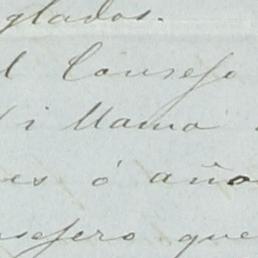 glados.
l Consejo
i llama
es ó año
nsejero que